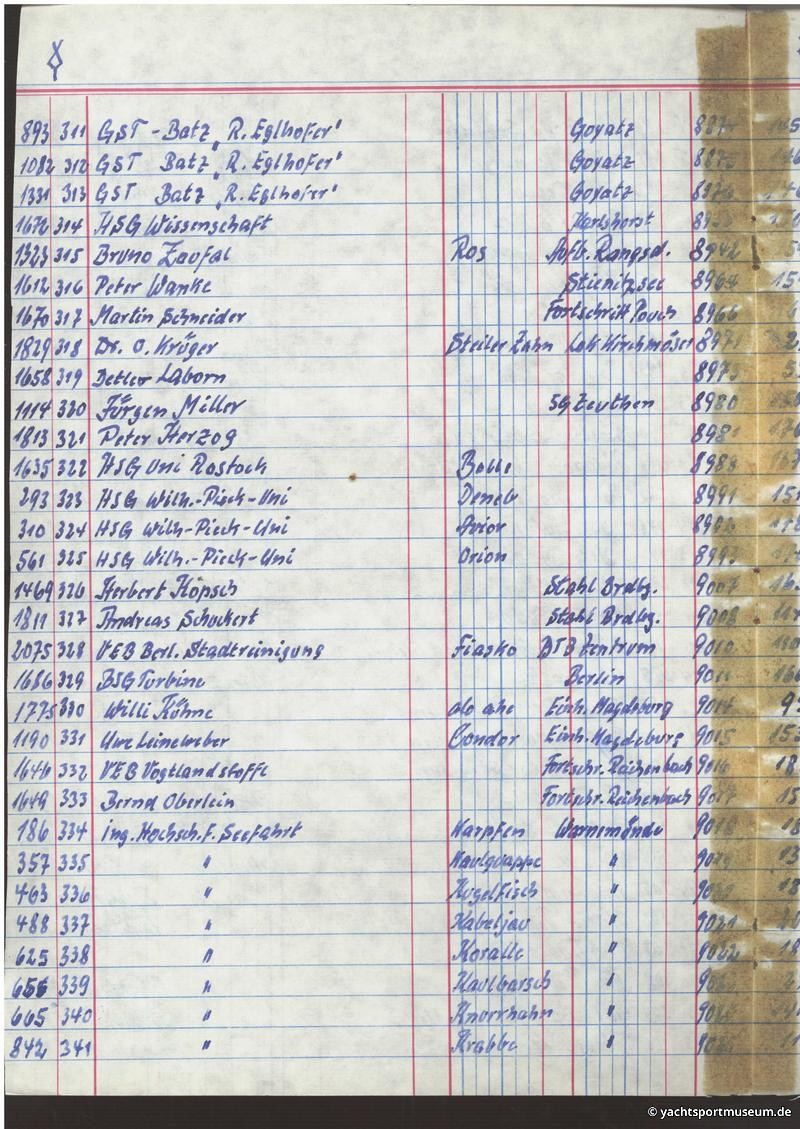 893 311 GST - Batz „R. Eglhofer" Goyatz
1082 312 GST Batz „R. Eglhofer" Goyatz
1331 313 GST Batz „R. Eglhofer" Goyatz
1672 314 HSG Wissenschaft Karlshorst
1323 315 Bruno Zaufal Ros Aufb. Rangsd. 8942
1612 316 Peter Wanke Stienitzsee 8964
1670 317 Martin Schneider Fortschritt Pouch 8966
1829 318 Dr. O. Krüger Steiler Zahn Lok Kirchmöser
1658 319 Detlev Laborn 8973
1114 320 Jürgen Miller SG Zeuthen 8980
1813 321 Peter Herzog 8981
1635 322 HSG Uni Rostock 8988
293 323 HSG Wilh.-Pieck-Uni Deneb 8991
310 324 HSG Wilh-Pieck-Uni
561 325 HSG Wilh.-Pieck-Uni Orion
1469 326 Herbert Köpsch Stahl Brdbg. 9007
1811 327 Andreas Schuckert Stahl Brdbg. 9008
2075 328 VEB Berl. Stadtreinigung Fiasko BTB Zentrum 9010
1686 329 BSG Turbine Berlin
1775 330 Willi Kühne Einh. Magdeburg 9014
1190 331 Uwe Leineweber Condor Einh. Magdeburg 9015
1646 332 VEB Vogtlandstoffe Fortschr. Reichenbach 9016
1649 333 Bernd Oberlein Fortschr. Reichenbach 9017
186 334 Ing. Hochsch. f. Seefahrt Karpfen Warnemünde 9018
357 335 " Kaulquappe "
463 336 " Kugelfisch "
488 337 " Kabeljau " 9021
625 338 " Koralle " 9022
656 339 " Kaulbarsch "
665 340 " Knurrhahn "
842 341 " Krabbe "
© yachtsportmuseum.de